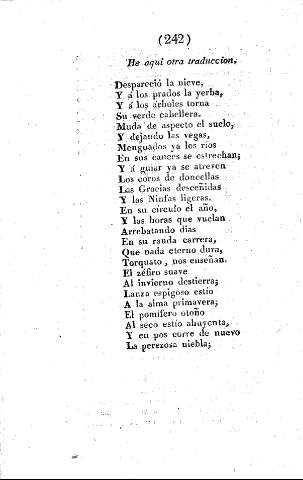 (242)
He aqui otra traduccion.
Despareció la nieve,
Y á los prados la yerba,
Y á los árboles torna
Su verde cabellera.
Muda de aspecto el suelo,
Y dejando las vegas,
Menguados ya los rios
En sus cauces se estrechan;
Y á guiar ya se atreven
Los coros de doncellas
Las Gracias desceñidas
Y las Ninfas ligeras.
En su círculo el año,
Y las horas que vuelan
Arrebatando dias
En su rauda carrera,
Que nada eterno dura,
Torquato, nos enseñan.
El zéfiro suave
Al invierno destierra;
Lanza espigoso estío
A la alma primavera;
El pomífero otoño
Al seco estío ahuyenta,
Y en pos corre de nuevo
La perezosa niebla;